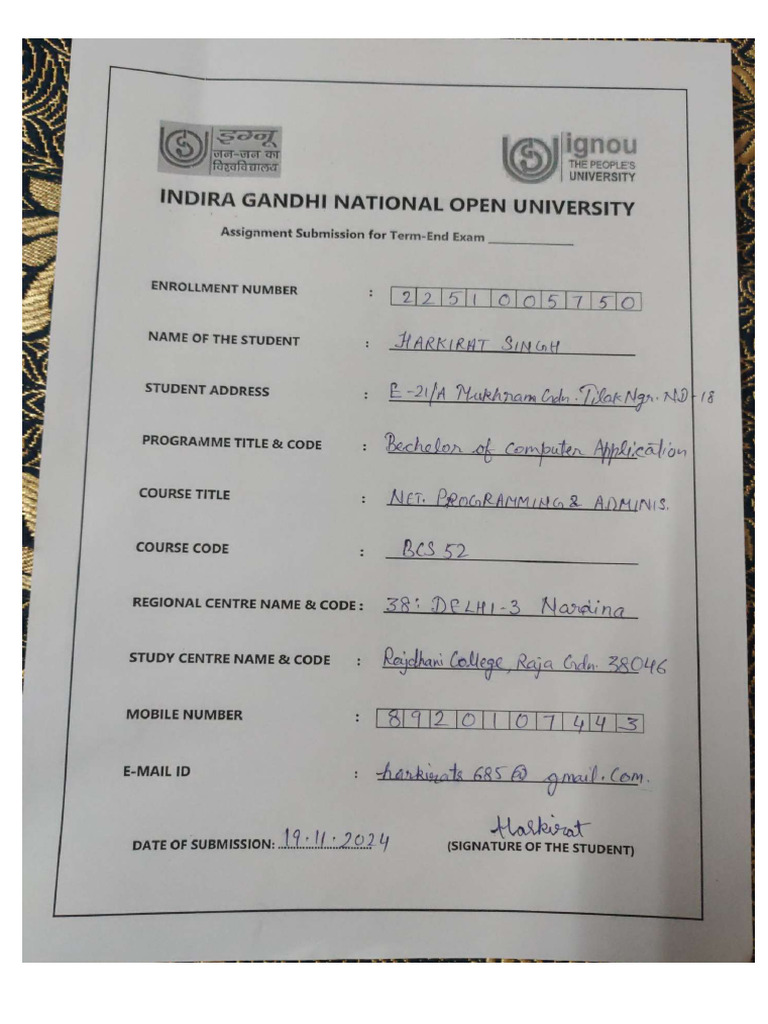 इग्नू
जन-जन का
विश्वविद्यालय
ignou
THE PEOPLE'S
UNIVERSITY
INDIRA GANDHI NATIONAL OPEN UNIVERSITY
Assignment Submission for Term-End Exam ____________
ENROLLMENT NUMBER : 2251005750
NAME OF THE STUDENT : HARKIRAT SINGH
STUDENT ADDRESS : E-21/A Mukhram Gdn. Tilak Ngr. ND-18
PROGRAMME TITLE & CODE : Bechelor of Computer Application
COURSE TITLE : NET. PROGRAMMING & ADMINIS.
COURSE CODE : BCS 52
REGIONAL CENTRE NAME & CODE : 38: DELHI-3 Nardina
STUDY CENTRE NAME & CODE : Rajdhani College, Raja Gdn. 38046
MOBILE NUMBER : 8920107443
E-MAIL ID : harkirats685@gmail.com.
Harkirat
DATE OF SUBMISSION: 19.11.2024 (SIGNATURE OF THE STUDENT)